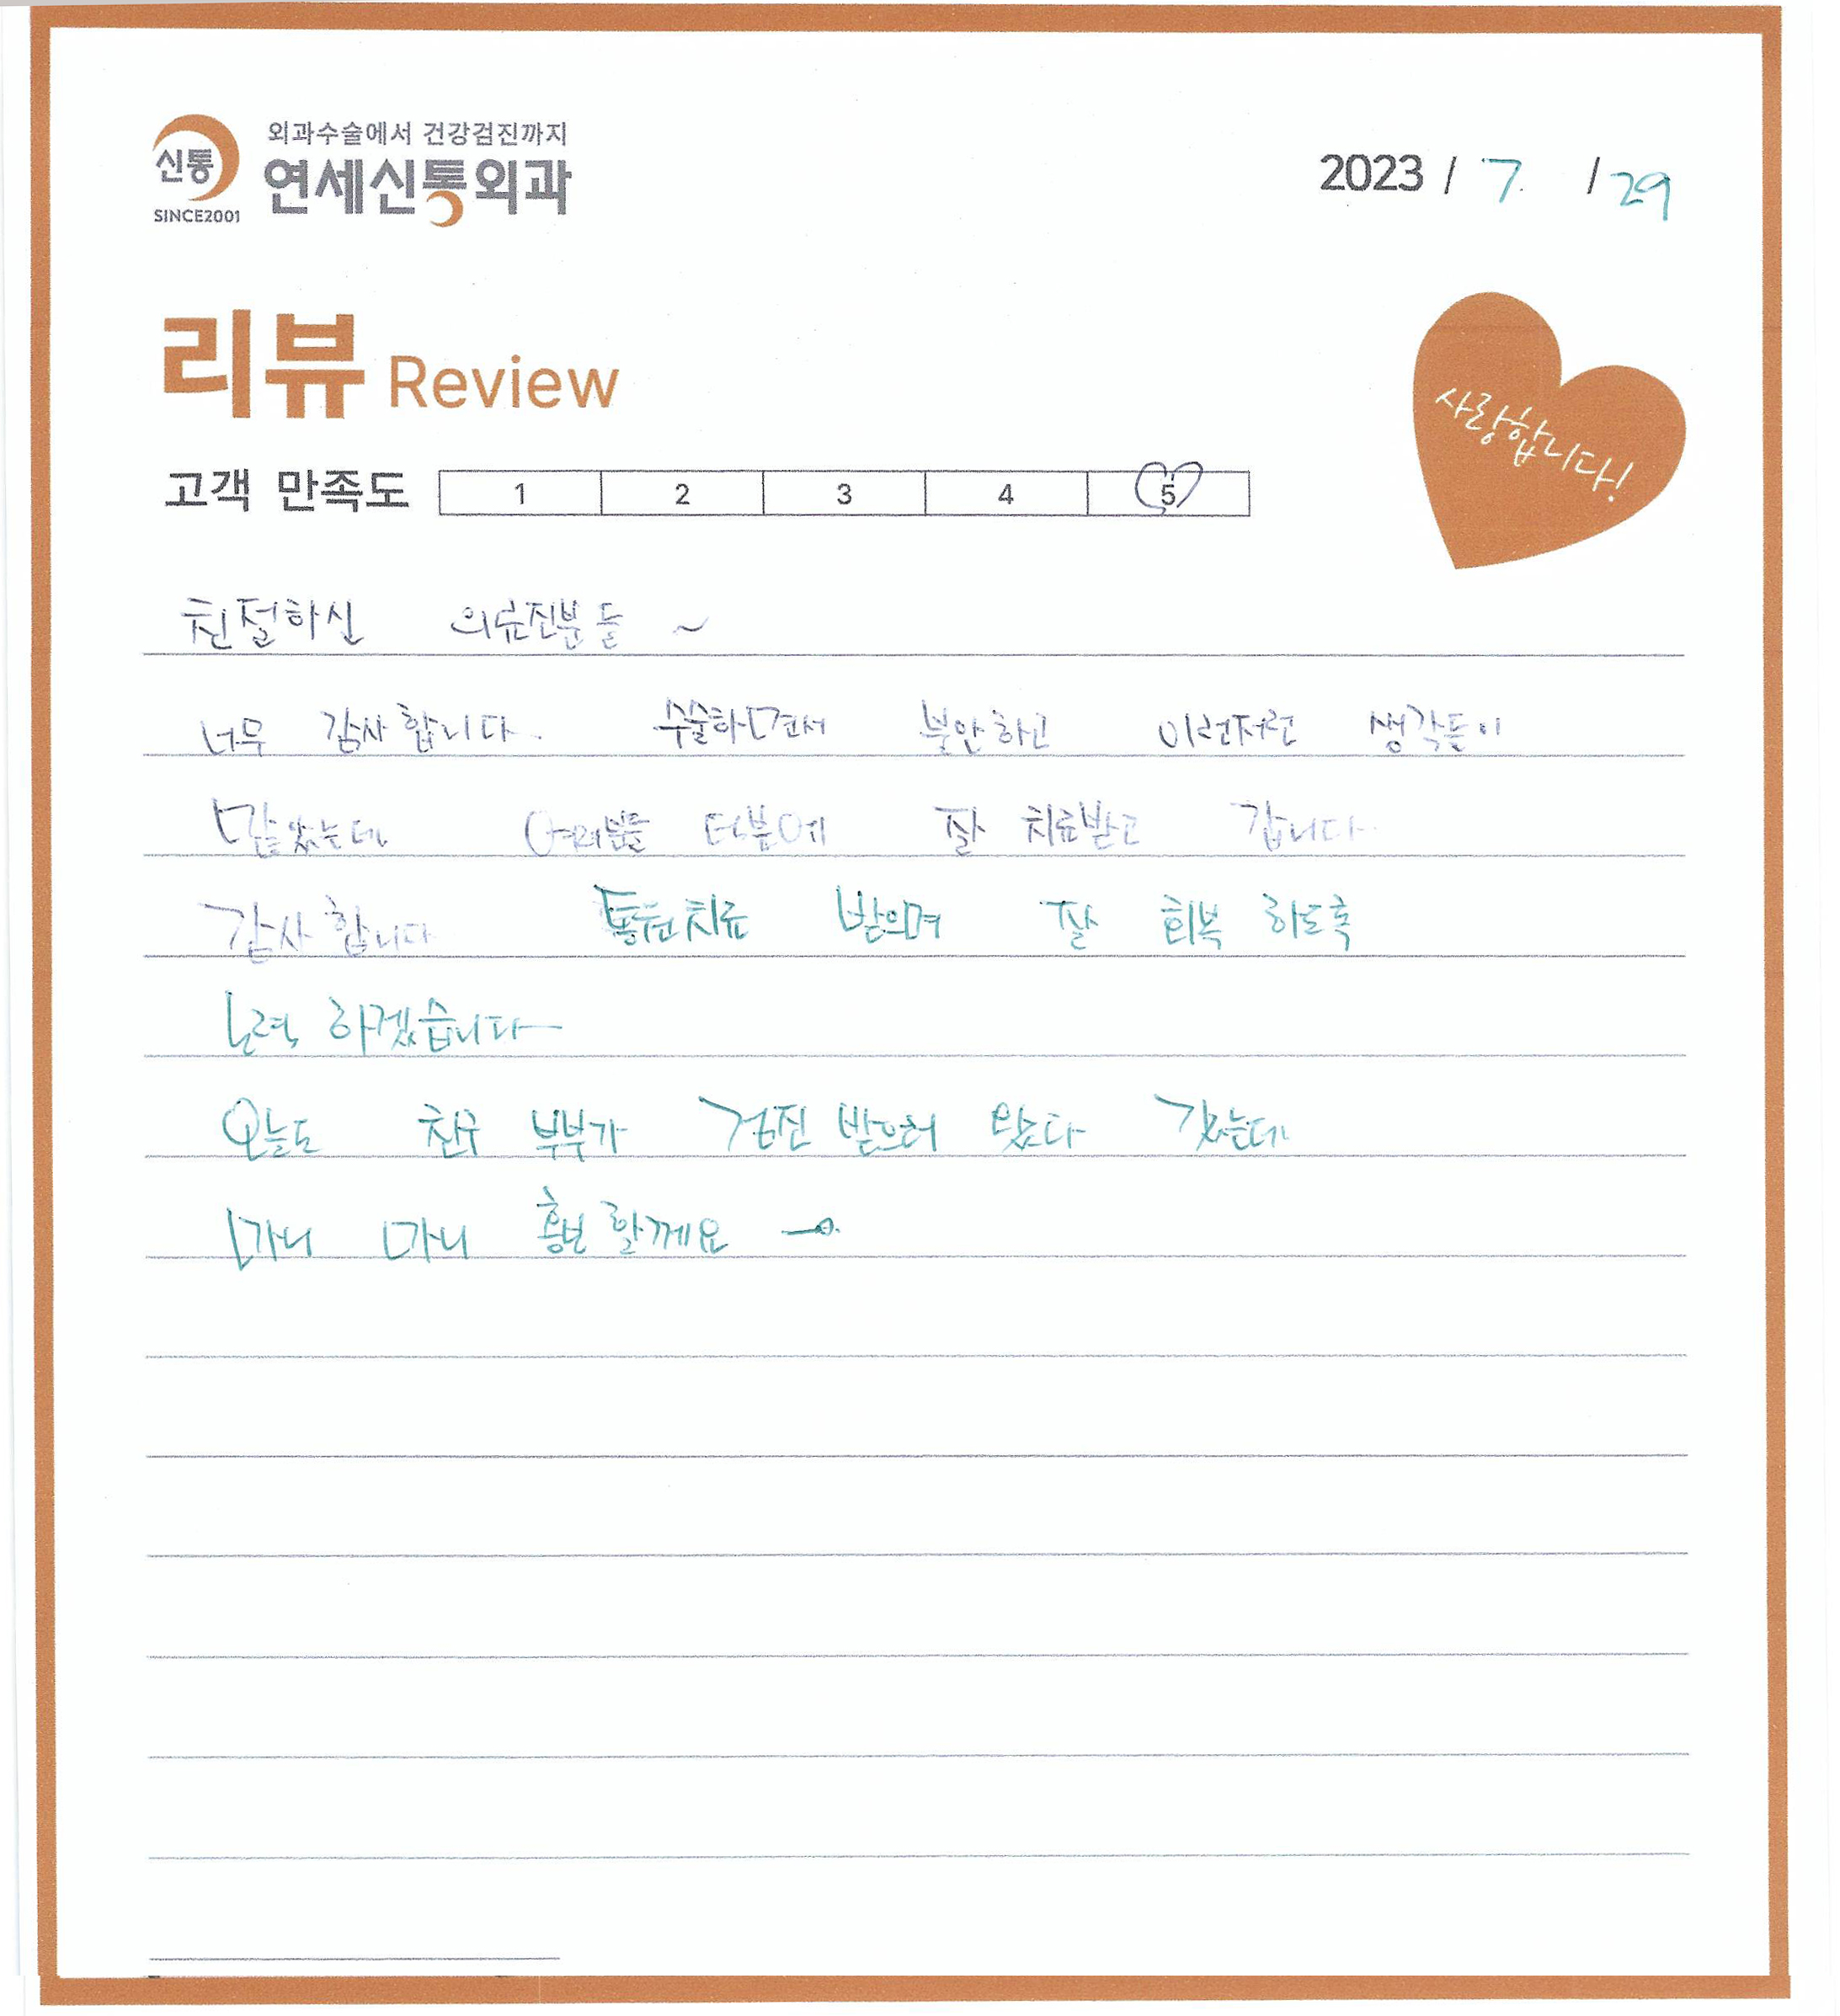 외과수술에서 건강검진까지
신통 연세신통외과
SINCE2001
2023 / 7 / 29
리뷰 Review
사랑합니다!
고객 만족도 1 2 3 4 5
친절하신 의료진분들 ~
너무 감사합니다. 수술하면서 불안하고 이런저런 생각들이
많았는데 여러분들 덕분에 잘 치료받고 갑니다.
감사합니다 통원치료 받으며 잘 회복 하도록
노력 하겠습니다
오늘도 친구 부부가 검진 받으러 왔다 갔는데
마니 마니 홍보 할께요